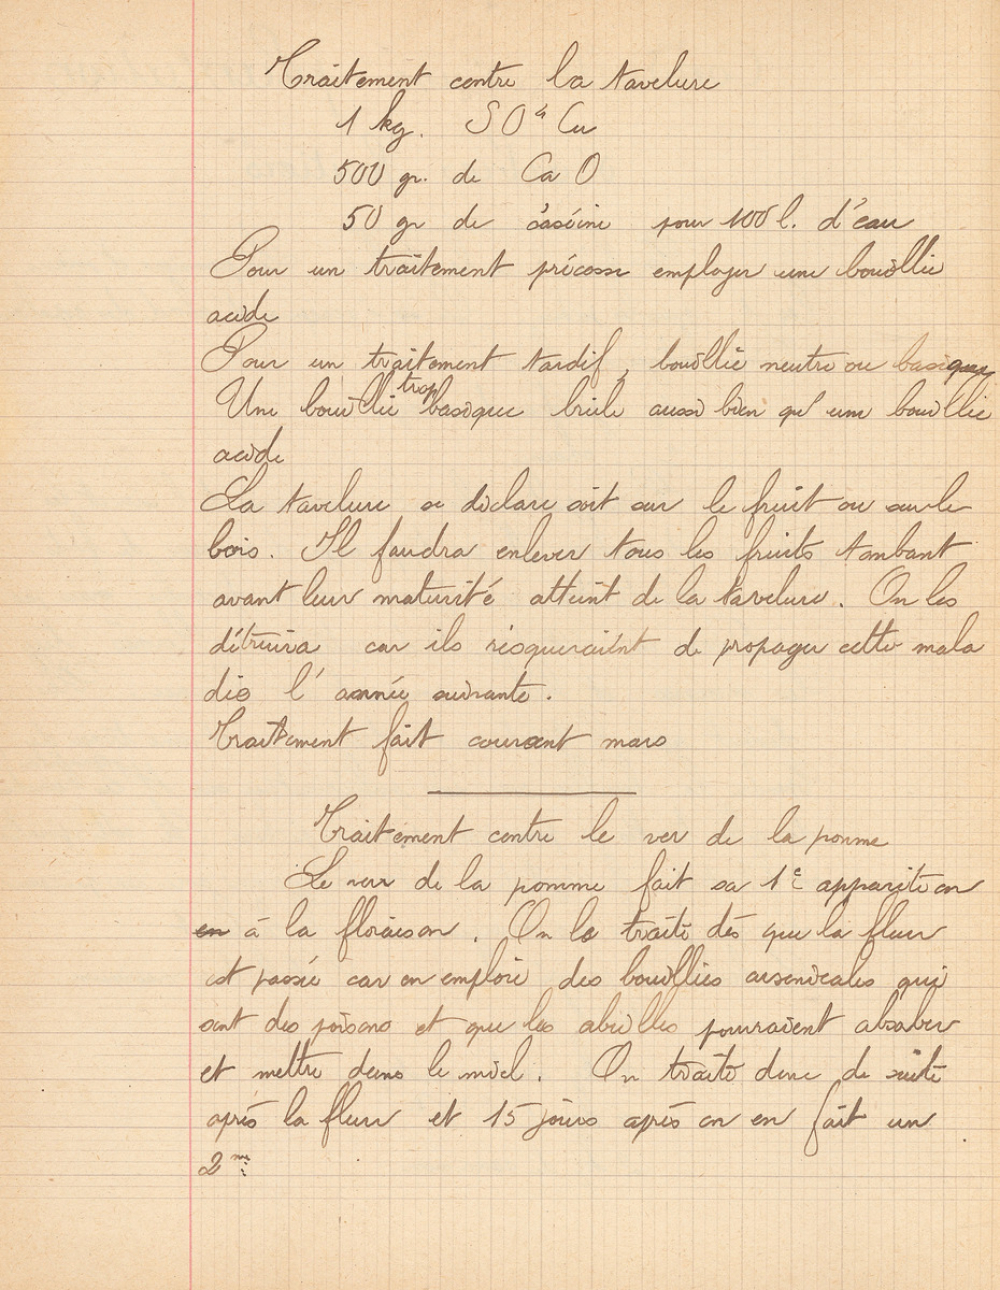 Traitement contre la tavelure
1 kg. SO⁴ Cu
500 gr. de Ca O
50 gr de caséine pour 100 l. d'eau
Pour un traitement précosse employer une bouillie
acide
Pour un traitement tardif, bouillie neutre ou basique
Une bouillie trop basique brûle aussi bien qu'une bouillie
acide
La tavelure se déclare soit sur le fruit ou sur le
bois. Il faudra enlever tous les fruits tombant
avant leur maturité atteint de la tavelure. On les
détruira car ils risqueraient de propager cette mala
die l'année suivante.
Traitement fait courant mars
Traitement contre le ver de la pomme
Le ver de la pomme fait sa 1e apparition
en à la floraison. On le traite dès que la fleur
est passée car on emploie des bouillies arsenicales qui
sont des poisons et que les abeilles pourraient absober
et mettre dans le miel. On traite donc de suite
après la fleur et 15 jours après on en fait un
2me